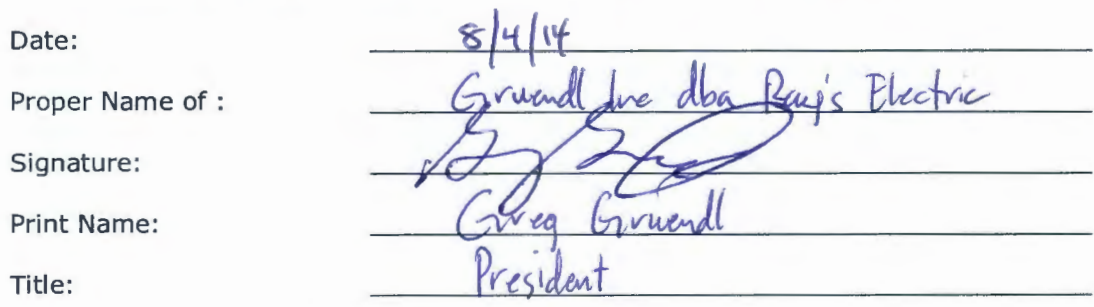 Date: 8/4/14
Proper Name of : Gruendl Inc dba Ray's Electric
Signature:
Print Name: Greg Gruendl
Title: President